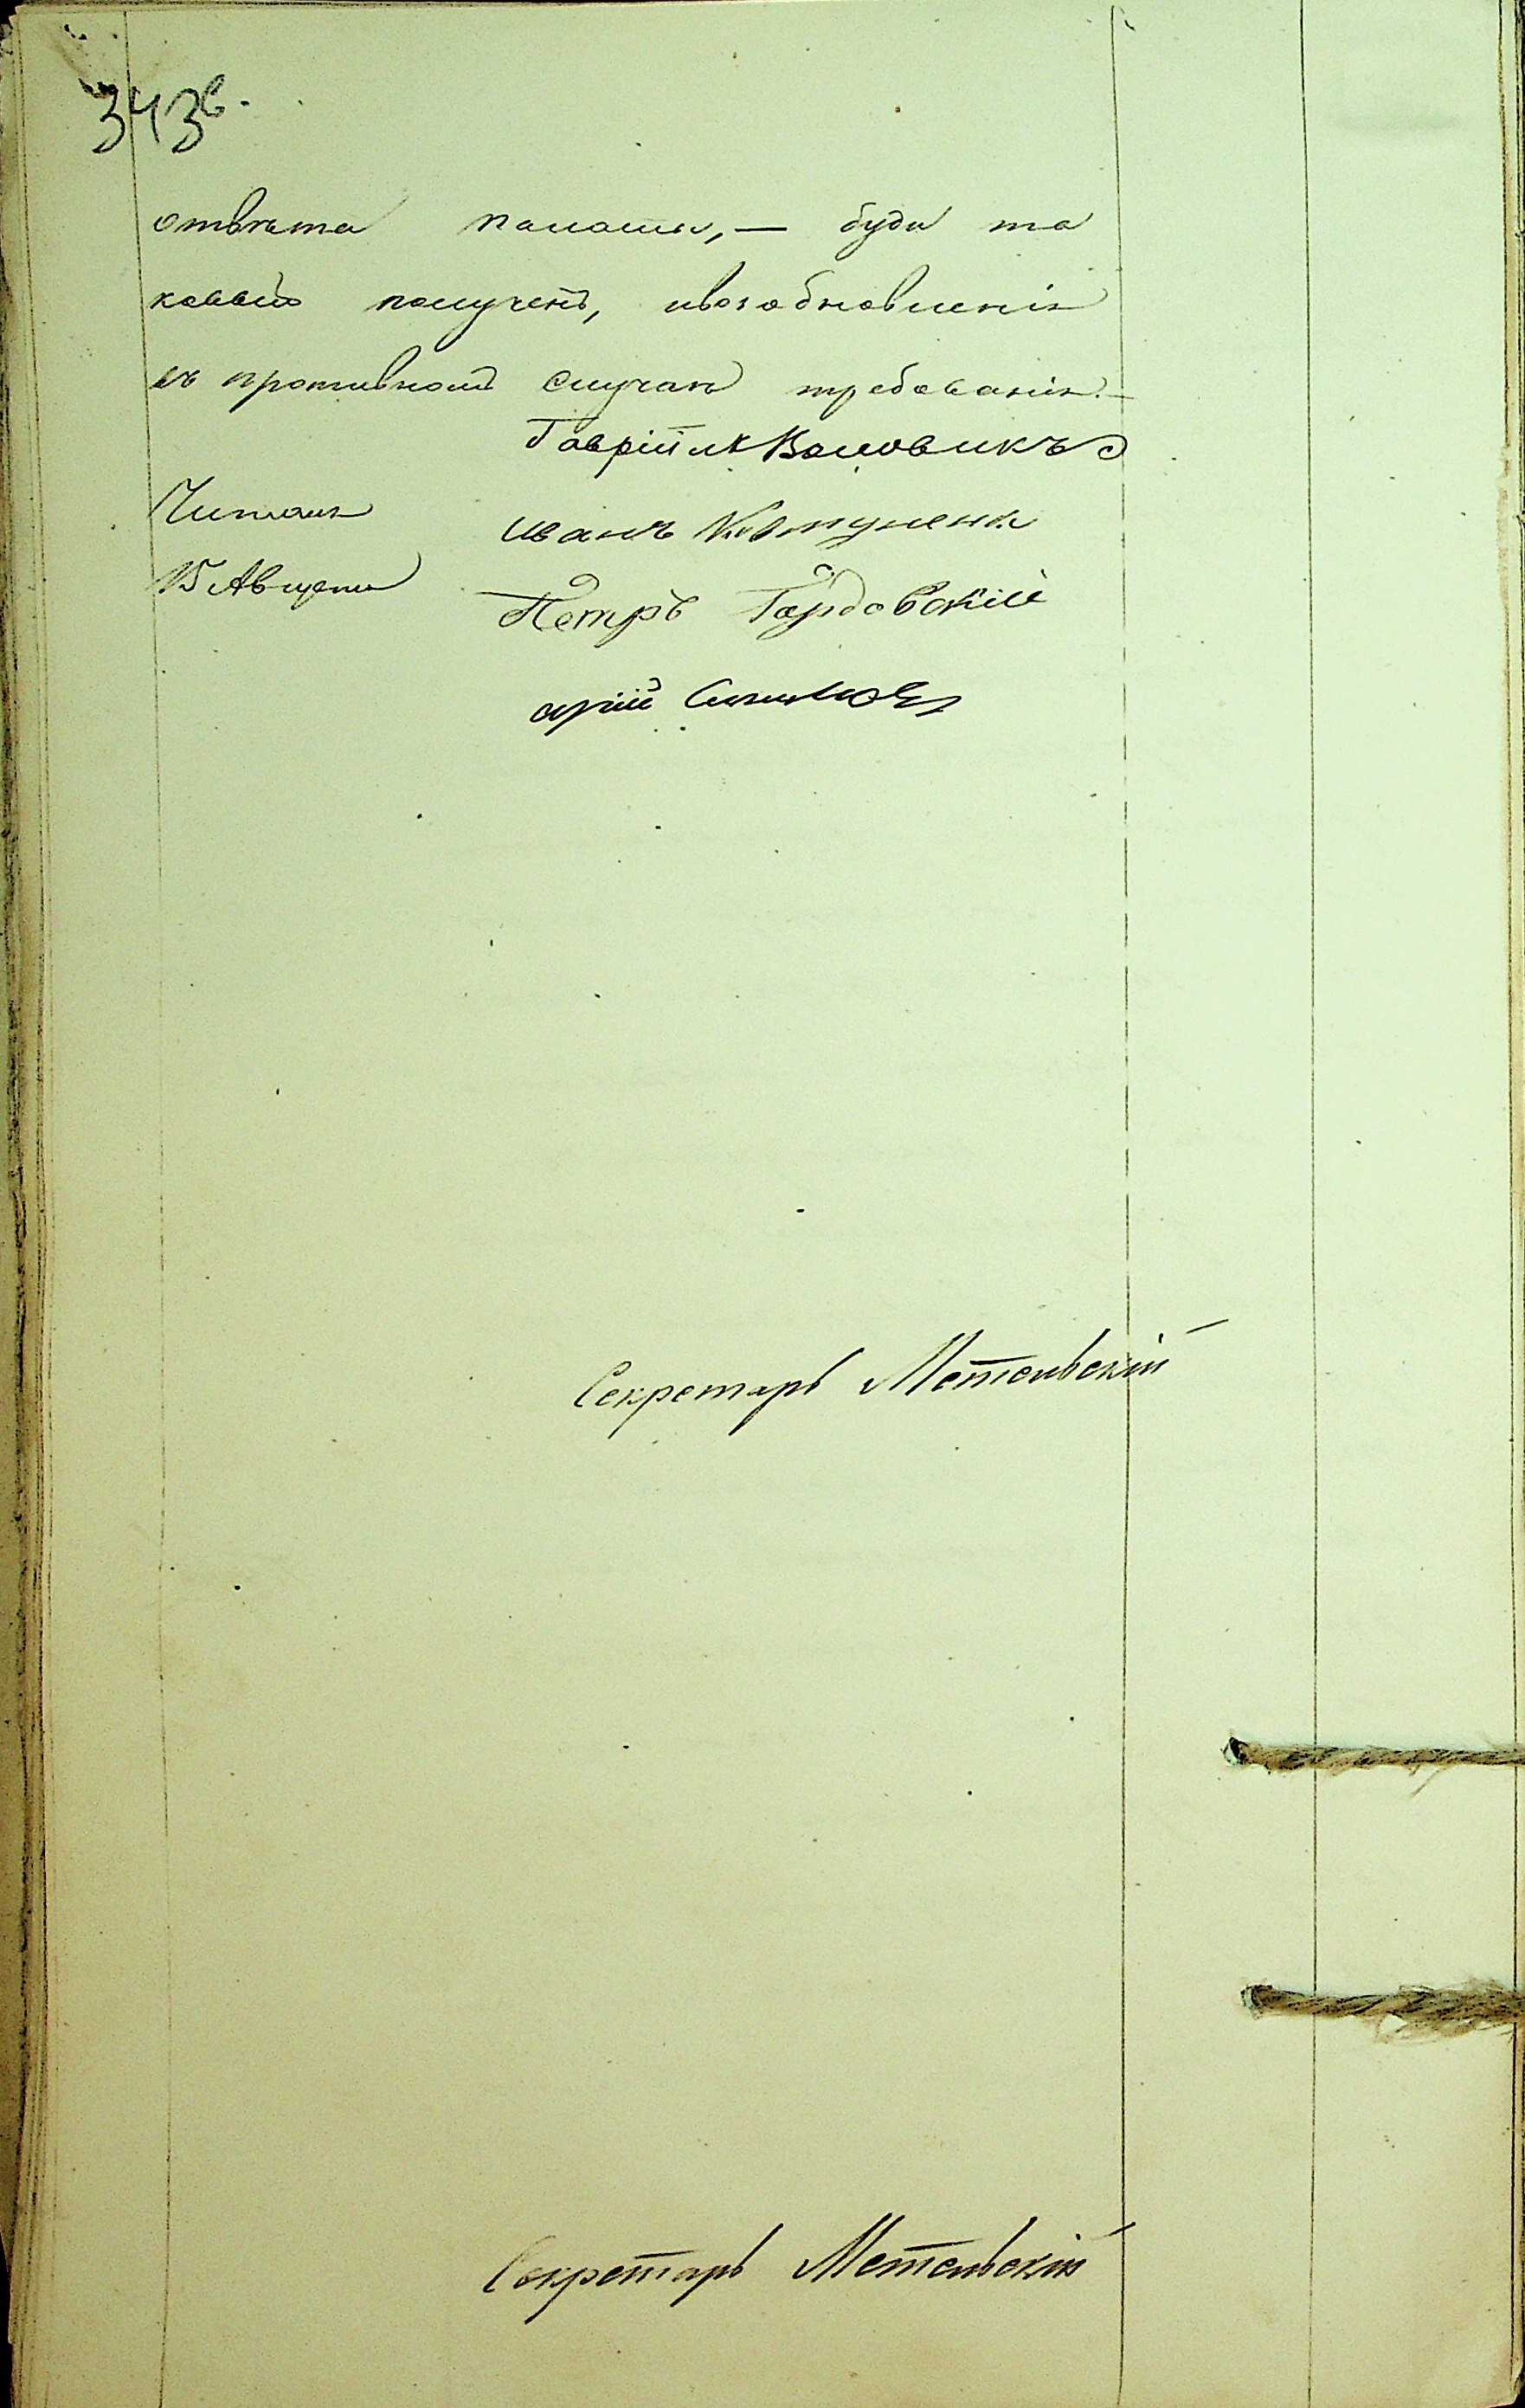 343в.
отвѣта палаты, — буди та
ковый полученъ, ивозобновленія
въ противномъ случаѣ требованія. —
Гавріилъ Воловикъ
Читали
Иванъ
15 Августа
Петръ Гордовскій
Секретарь Метельскій
Секретарь Метельскій